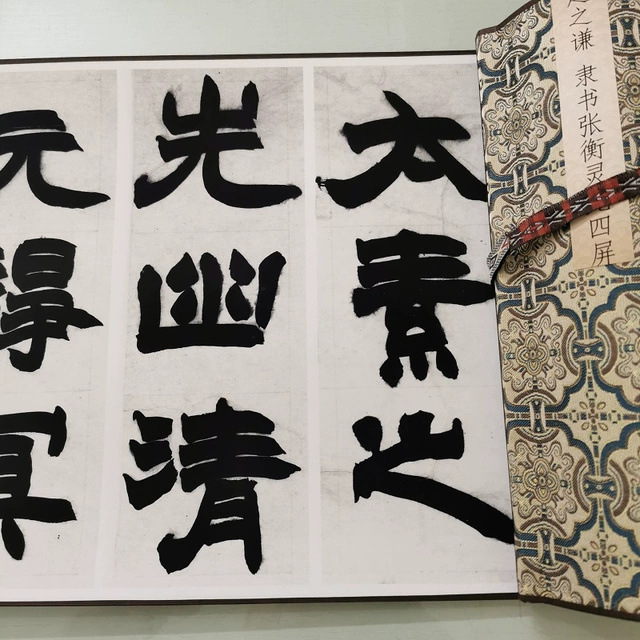 之谦 隶书张衡灵
四屏
太素之
先幽清
元